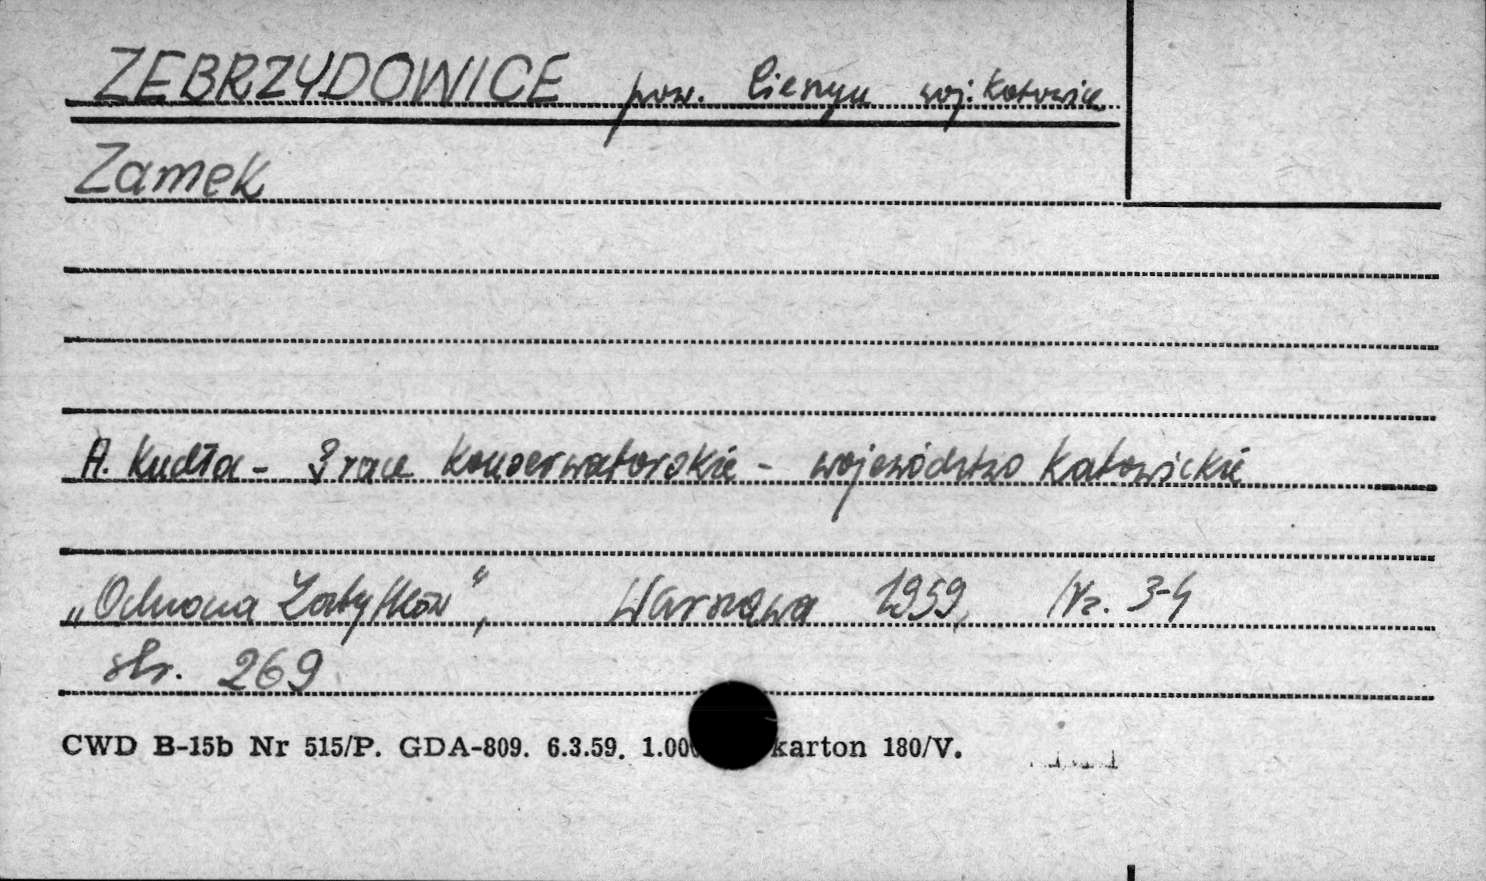 ZEBRZYDOWICE pow. Cieszyn woj. Katowice
Zamek
A. Kudła - Prace konserwatorskie - województwo katowickie
„Ochrona Zabytków", Warszawa 1959, Nr. 3-4
str. 269
CWD B-15b Nr 515/P. GDA-809. 6.3.59. 1.000 karton 180/V.